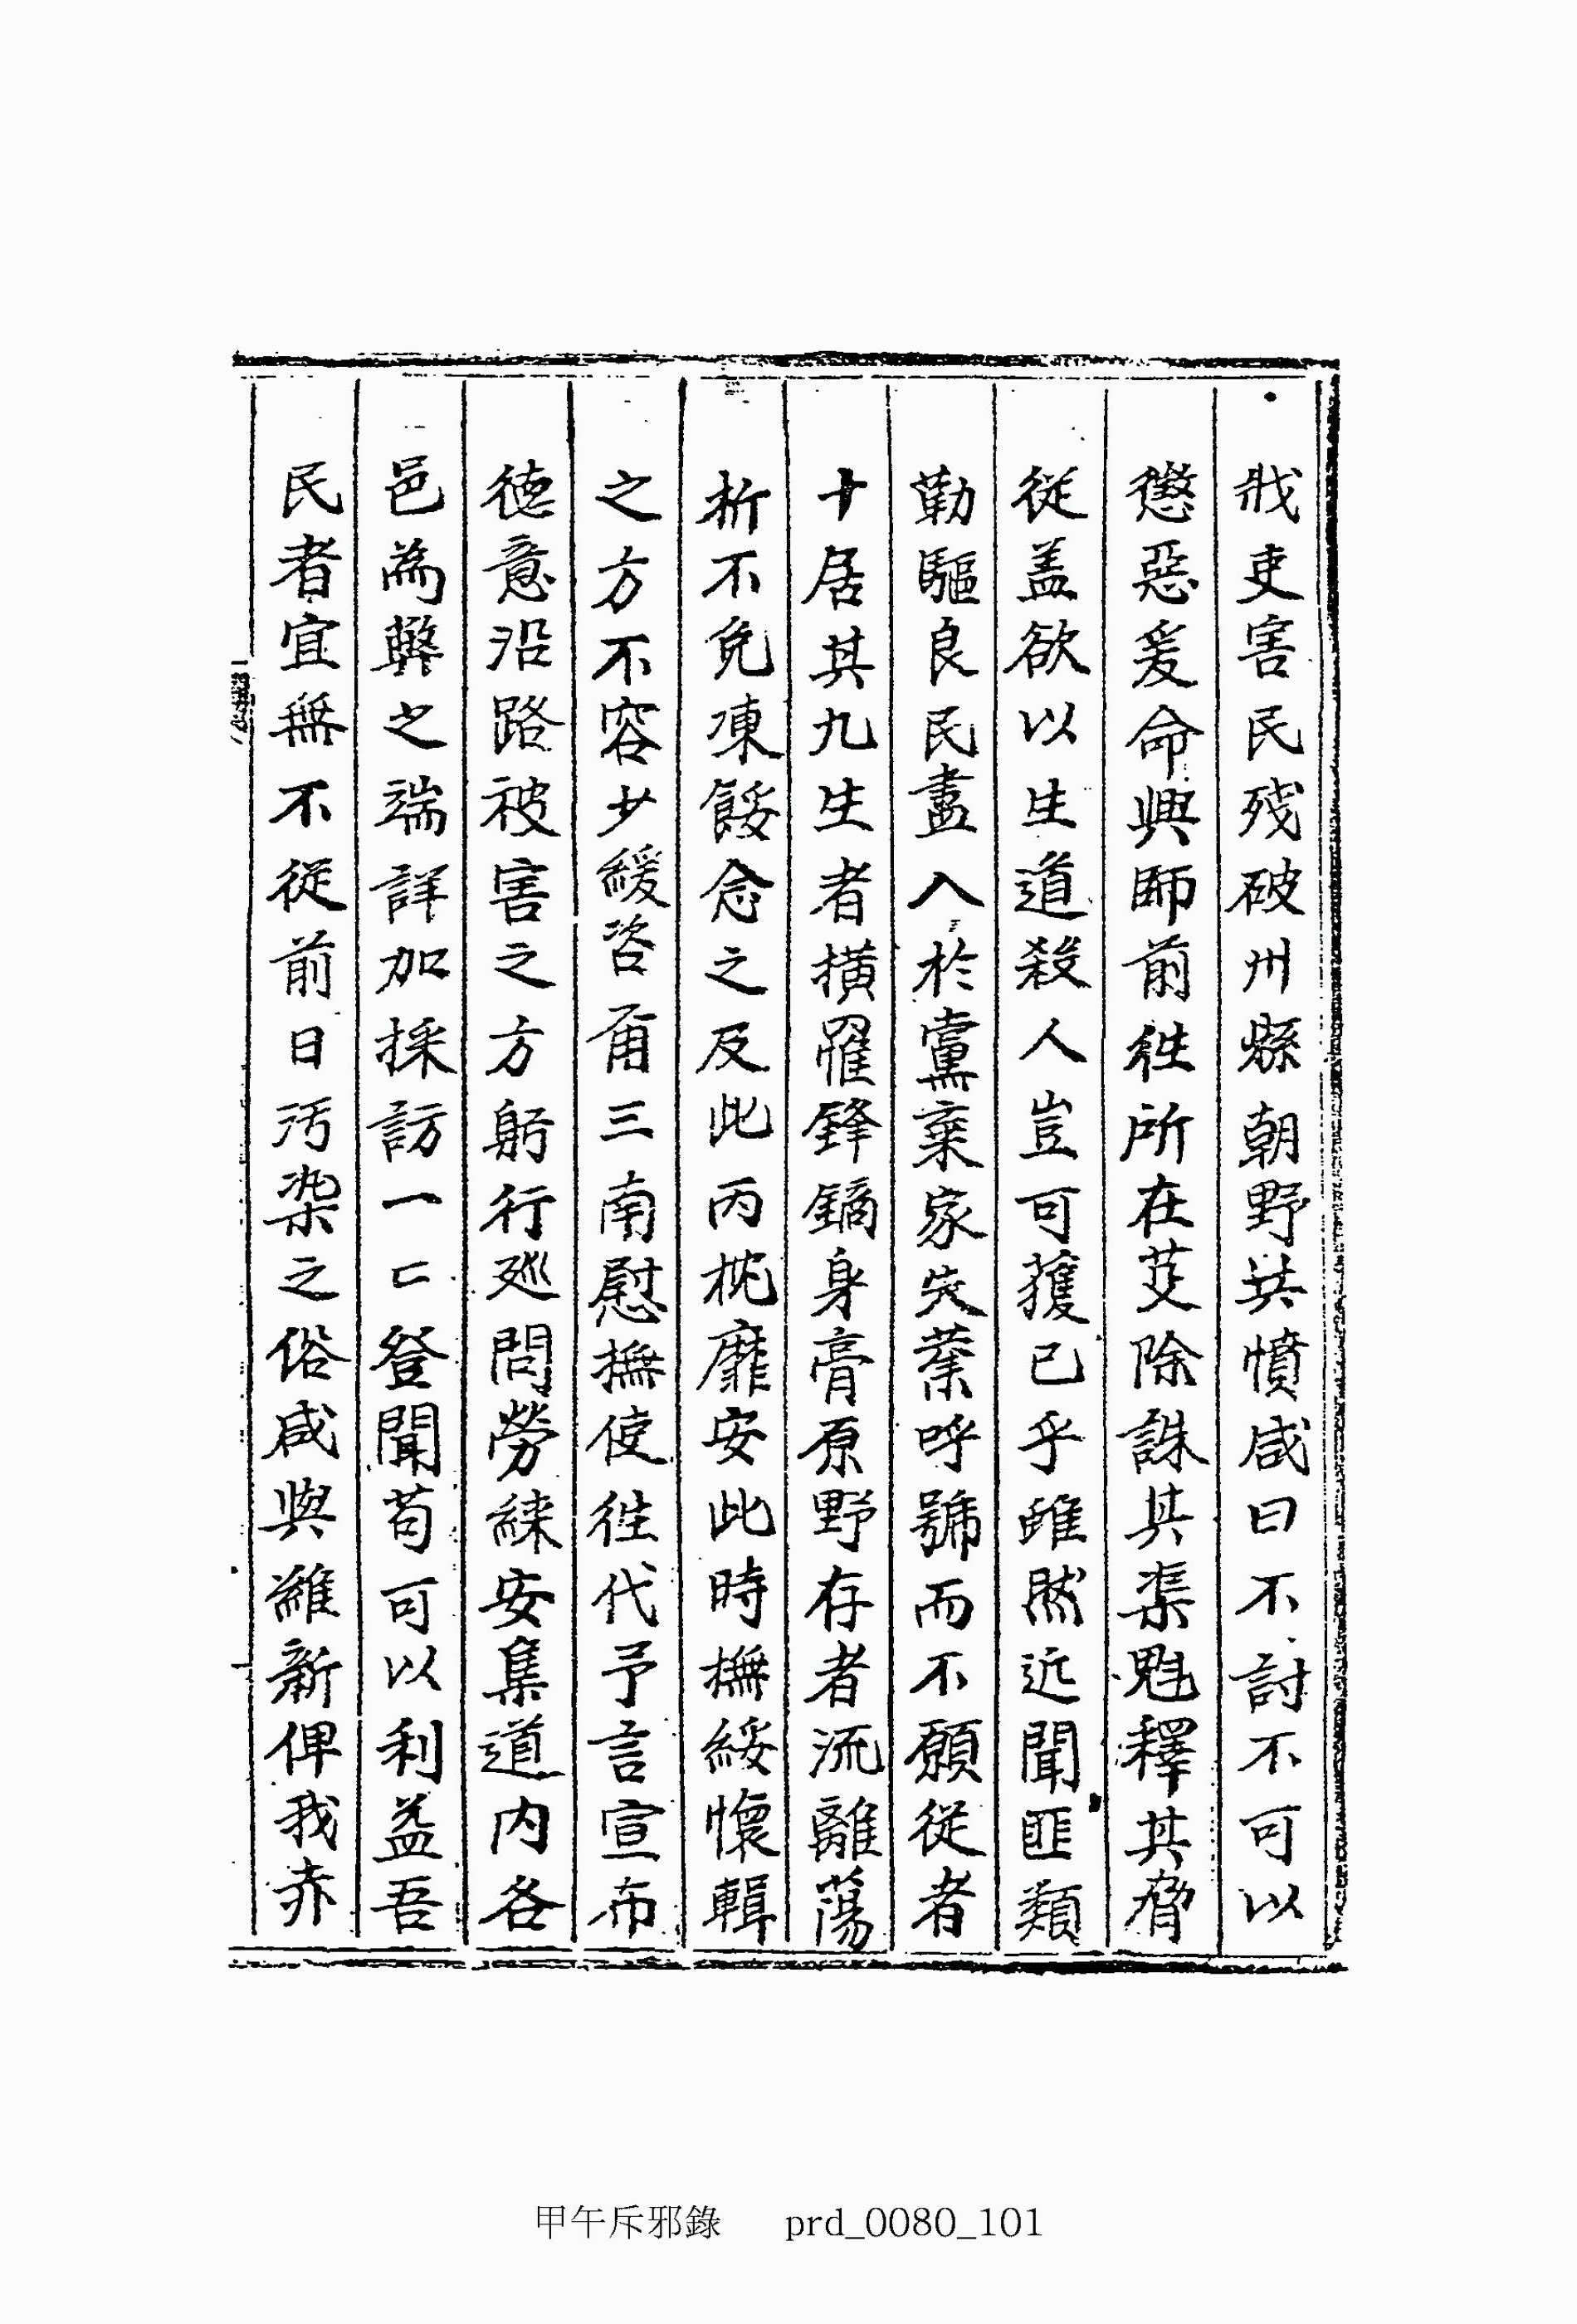 戕吏害民殘破州縣朝野共憤咸曰不討不可以
懲惡爰命興師前徃所在芟除誅其渠魁釋其脅
從盖欲以生道殺人豈可獲已乎雖然近聞匪類
勒驅良民盡入於黨棄家失業呼號而不願從者
十居其九生者橫罹鋒鏑身膏原野存者流離蕩
析不免凍餒念之及此丙枕靡安此時撫綏懷輯
之方不容少緩咨甬三南慰撫使徃代予言宣布
德意沿路被害之方躬行廵問勞練安集道內各
邑爲弊之端詳加採訪一一登聞苟可以利益吾
民者宜無不從前日汚染之俗咸與維新俾我赤
甲午斥邪錄 prd_0080_101